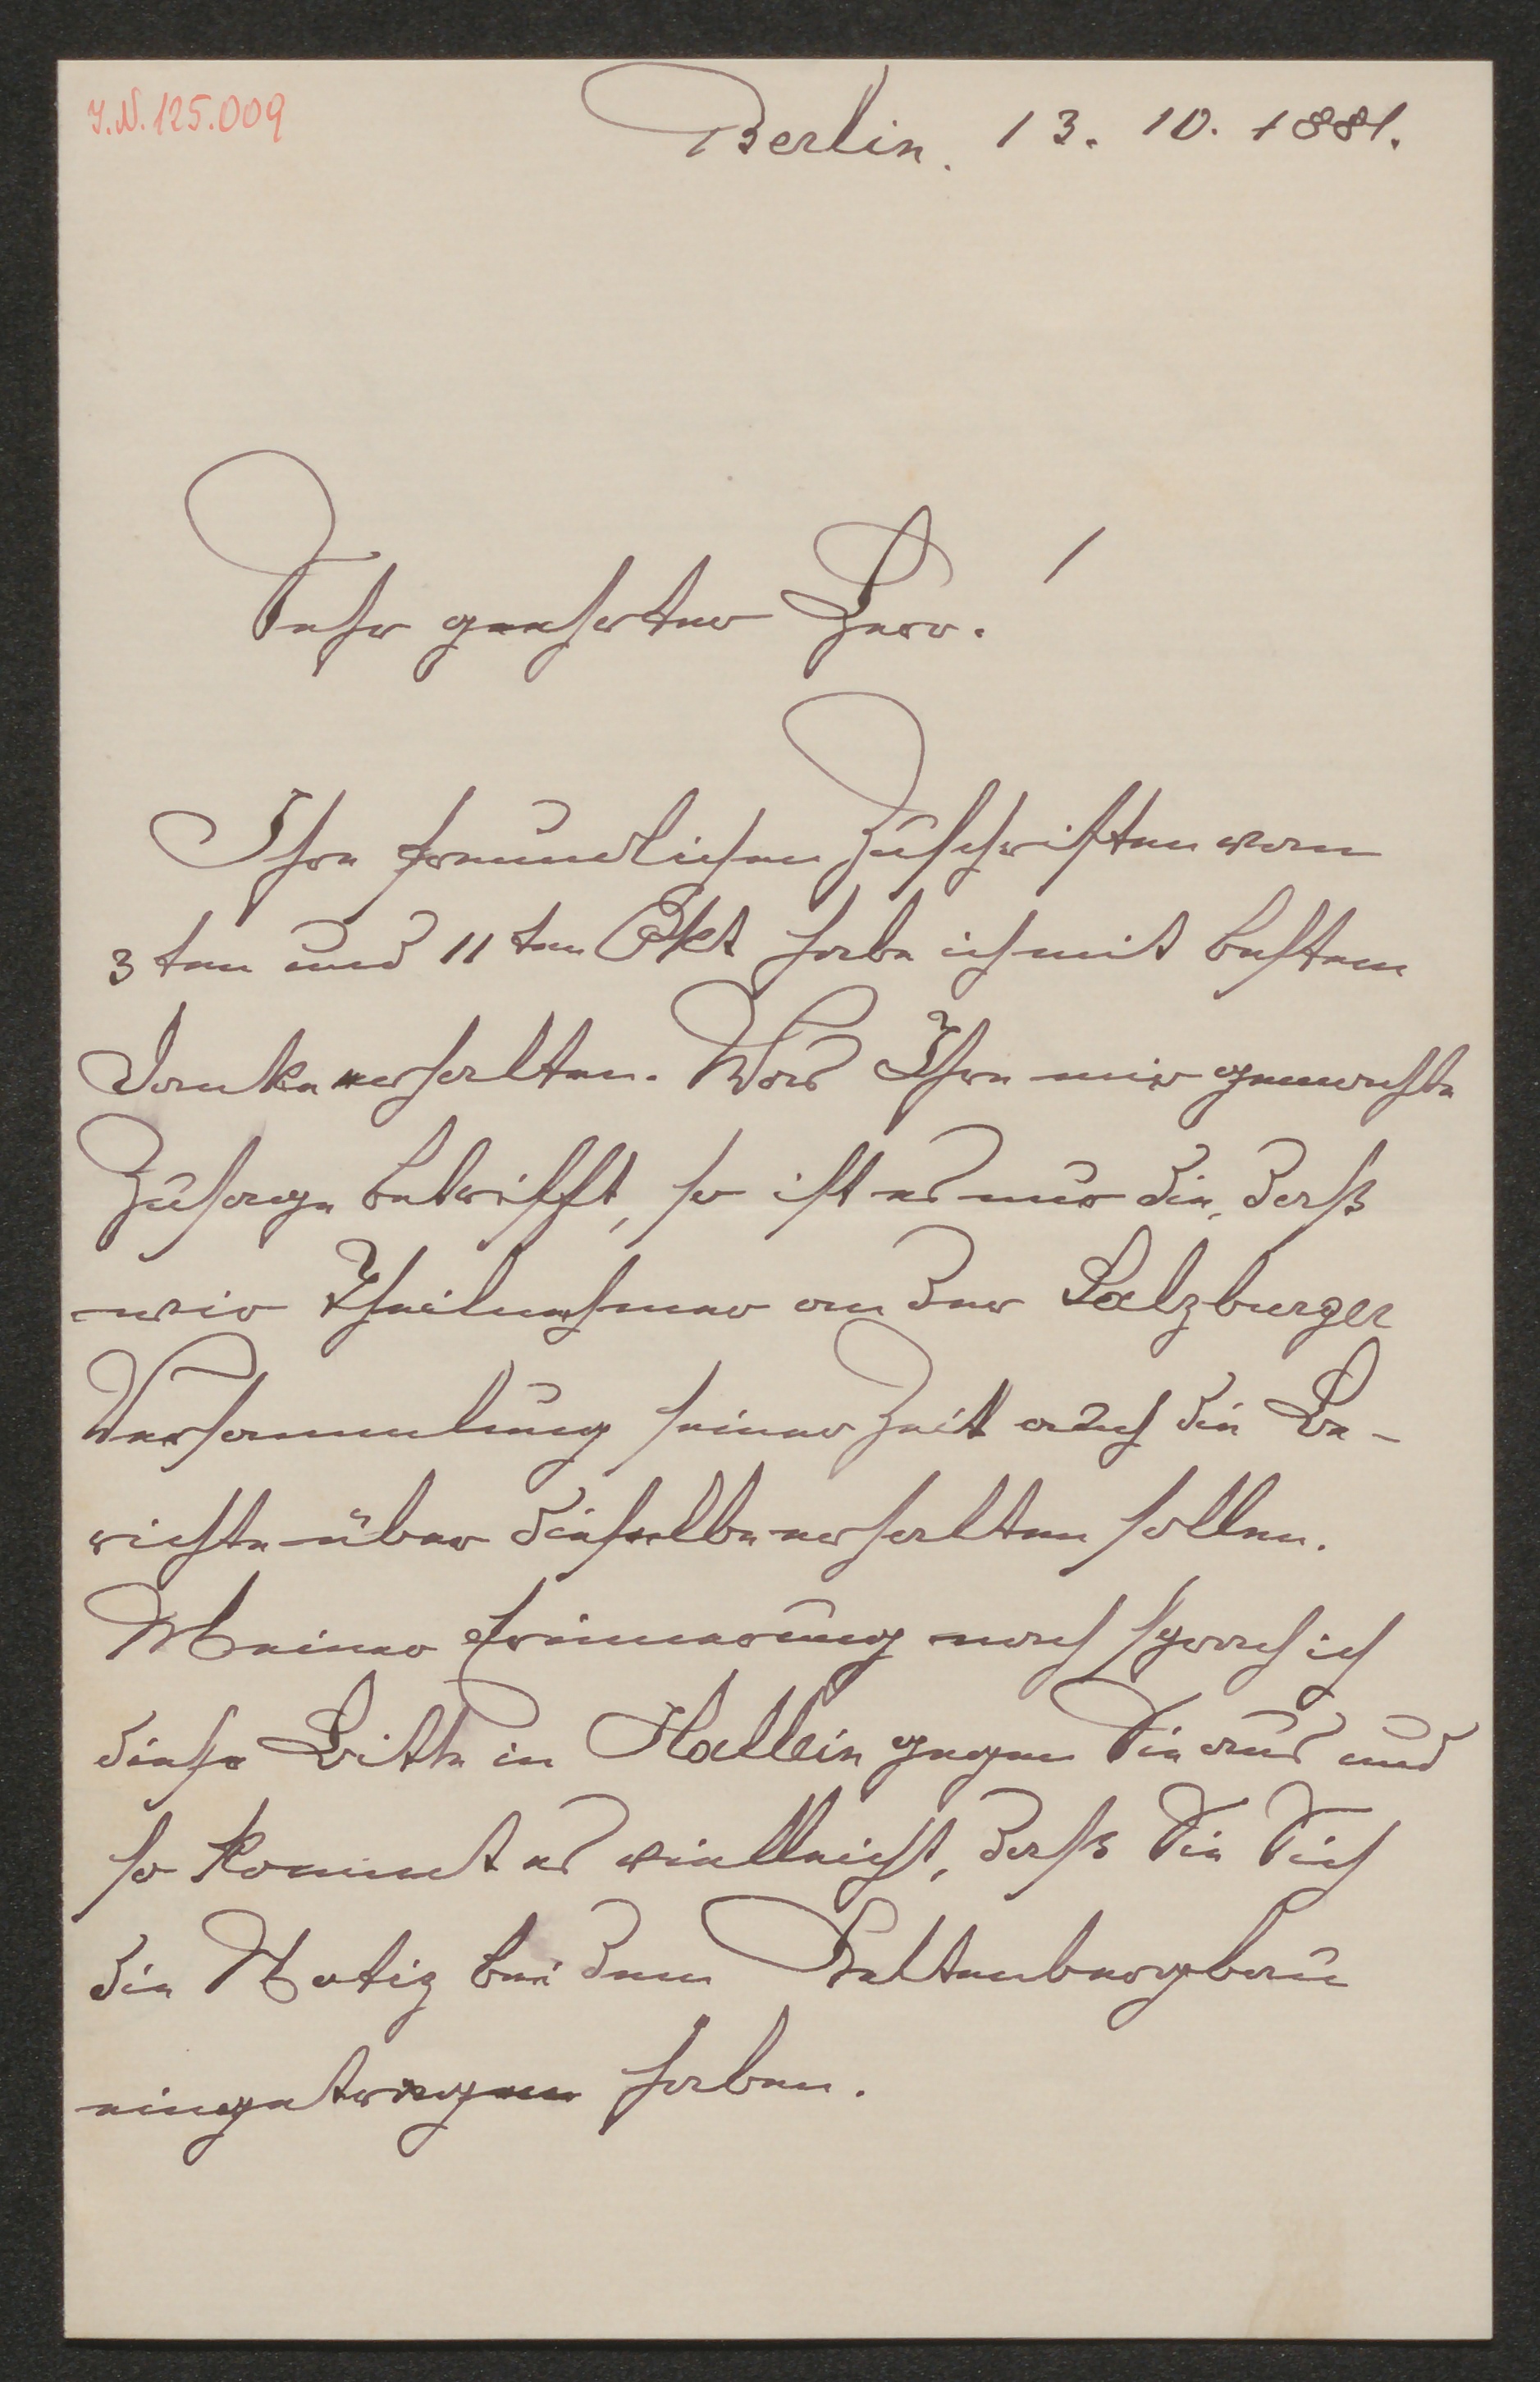 I.N. 125.009
Berlin. 13. 10. 1881.
Sehr geehrter Herr!
Ihre freundlichen Zuschriften vom
3ten und 11ten Okt habe ich mit bestem
Danke erhalten. Was Ihre mir gemachte
Zusage betrifft, so ist es nur die, daß
wir Theilnehmer an der Salzburger
Versammlung seiner Zeit auch die Be-
richte über dieselbe erhalten sollen.
Meiner Erinnerung nach sprach ich
diese Bitte in Hallein gegen Sie aus und
so kommt es vielleicht, daß Sie Sich
die Notiz bei dem Keltenbergbau
eingetragen haben.